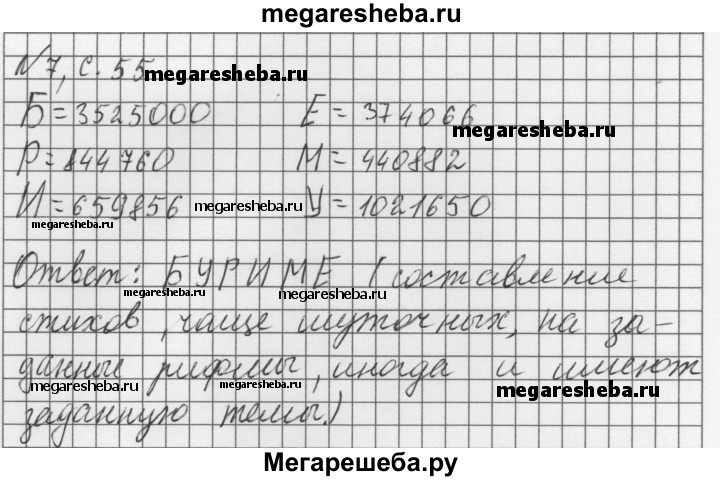 megaresheba.ru
№7, с. 55
megaresheba.ru
Б=3525000 Е=374066
megaresheba.ru
Р=844760 М=440882
И=659856 megaresheba.ru У=1021650
megaresheba.ru
Ответ: БУРИМЕ (составление
megaresheba.ru megaresheba.ru
стихов, чаще шуточных, на за-
данные рифмы, иногда и имеют
megaresheba.ru megaresheba.ru megaresheba.ru
заданную темы.)
Мегарешеба.ру